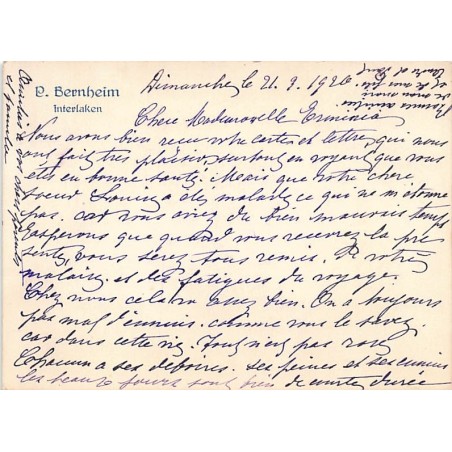 P. Bernheim
Interlaken
Dimanche, le 21. 9. 1920
Chere Mademoiselle Erminia
Nous avons bien recu votre cartes et lettre, qui nous
ont fait tres plaisir, surtout en voyant que vous
ete en bonne santé. Mais que votre chere
soeur Louisa a ete malade ce qui ne m'etonne
pas. car vous aviez du bien mauvais temps
J'esperons que quand vous recevrez la pre
sente, vous serez tous remis. de votre
malaise et des fatigues du voyage.
Chez nous cela va assez bien. On a toujours
pas mal d'ennuis. comme vous le savez.
car dans cette vie. Tout n'est pas rose
Chacun a ses deboires. ses peines et ses ennuis
les beaux jours sont bien de courte durée